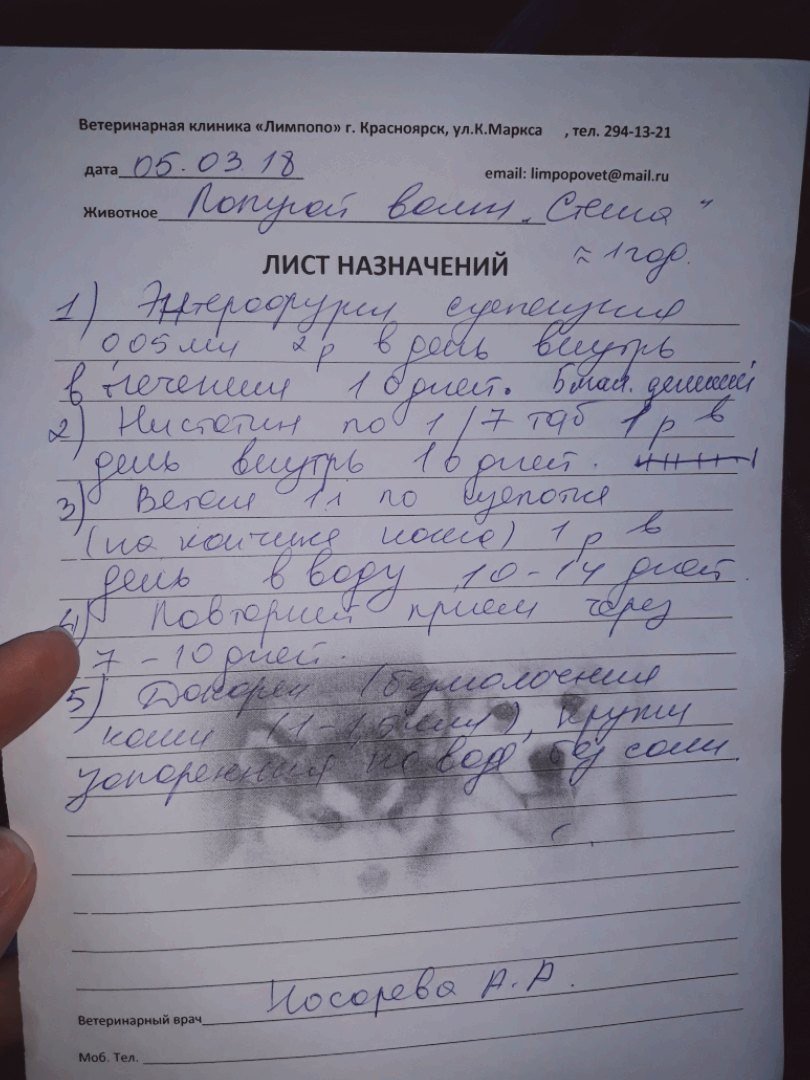 Ветеринарная клиника «Лимпопо» г. Красноярск, ул.К.Маркса , тел. 294-13-21
дата 05.03.18 email: limpopovet@mail.ru
Животное Попугай волн „Стеша"
≈ 1 год.
ЛИСТ НАЗНАЧЕНИЙ
1) Энтерофурил суспензия
0,05 мл 2 р в день внутрь
в течении 10 дней.
2) Нистатин по 1/7 таб 1 р в
день внутрь 10 дней.
3) Ветом 1.1 по щепотке
(на кончике ножа) 1 р в
день в воду 10-14 дней.
4) Повторить прием через
7-10 дней.
5) Докорм (безмолочная
каши (1-1,5 ), крупы
запаренная на воде без соли.
Ветеринарный врач Носарева А.А.
Моб. Тел.